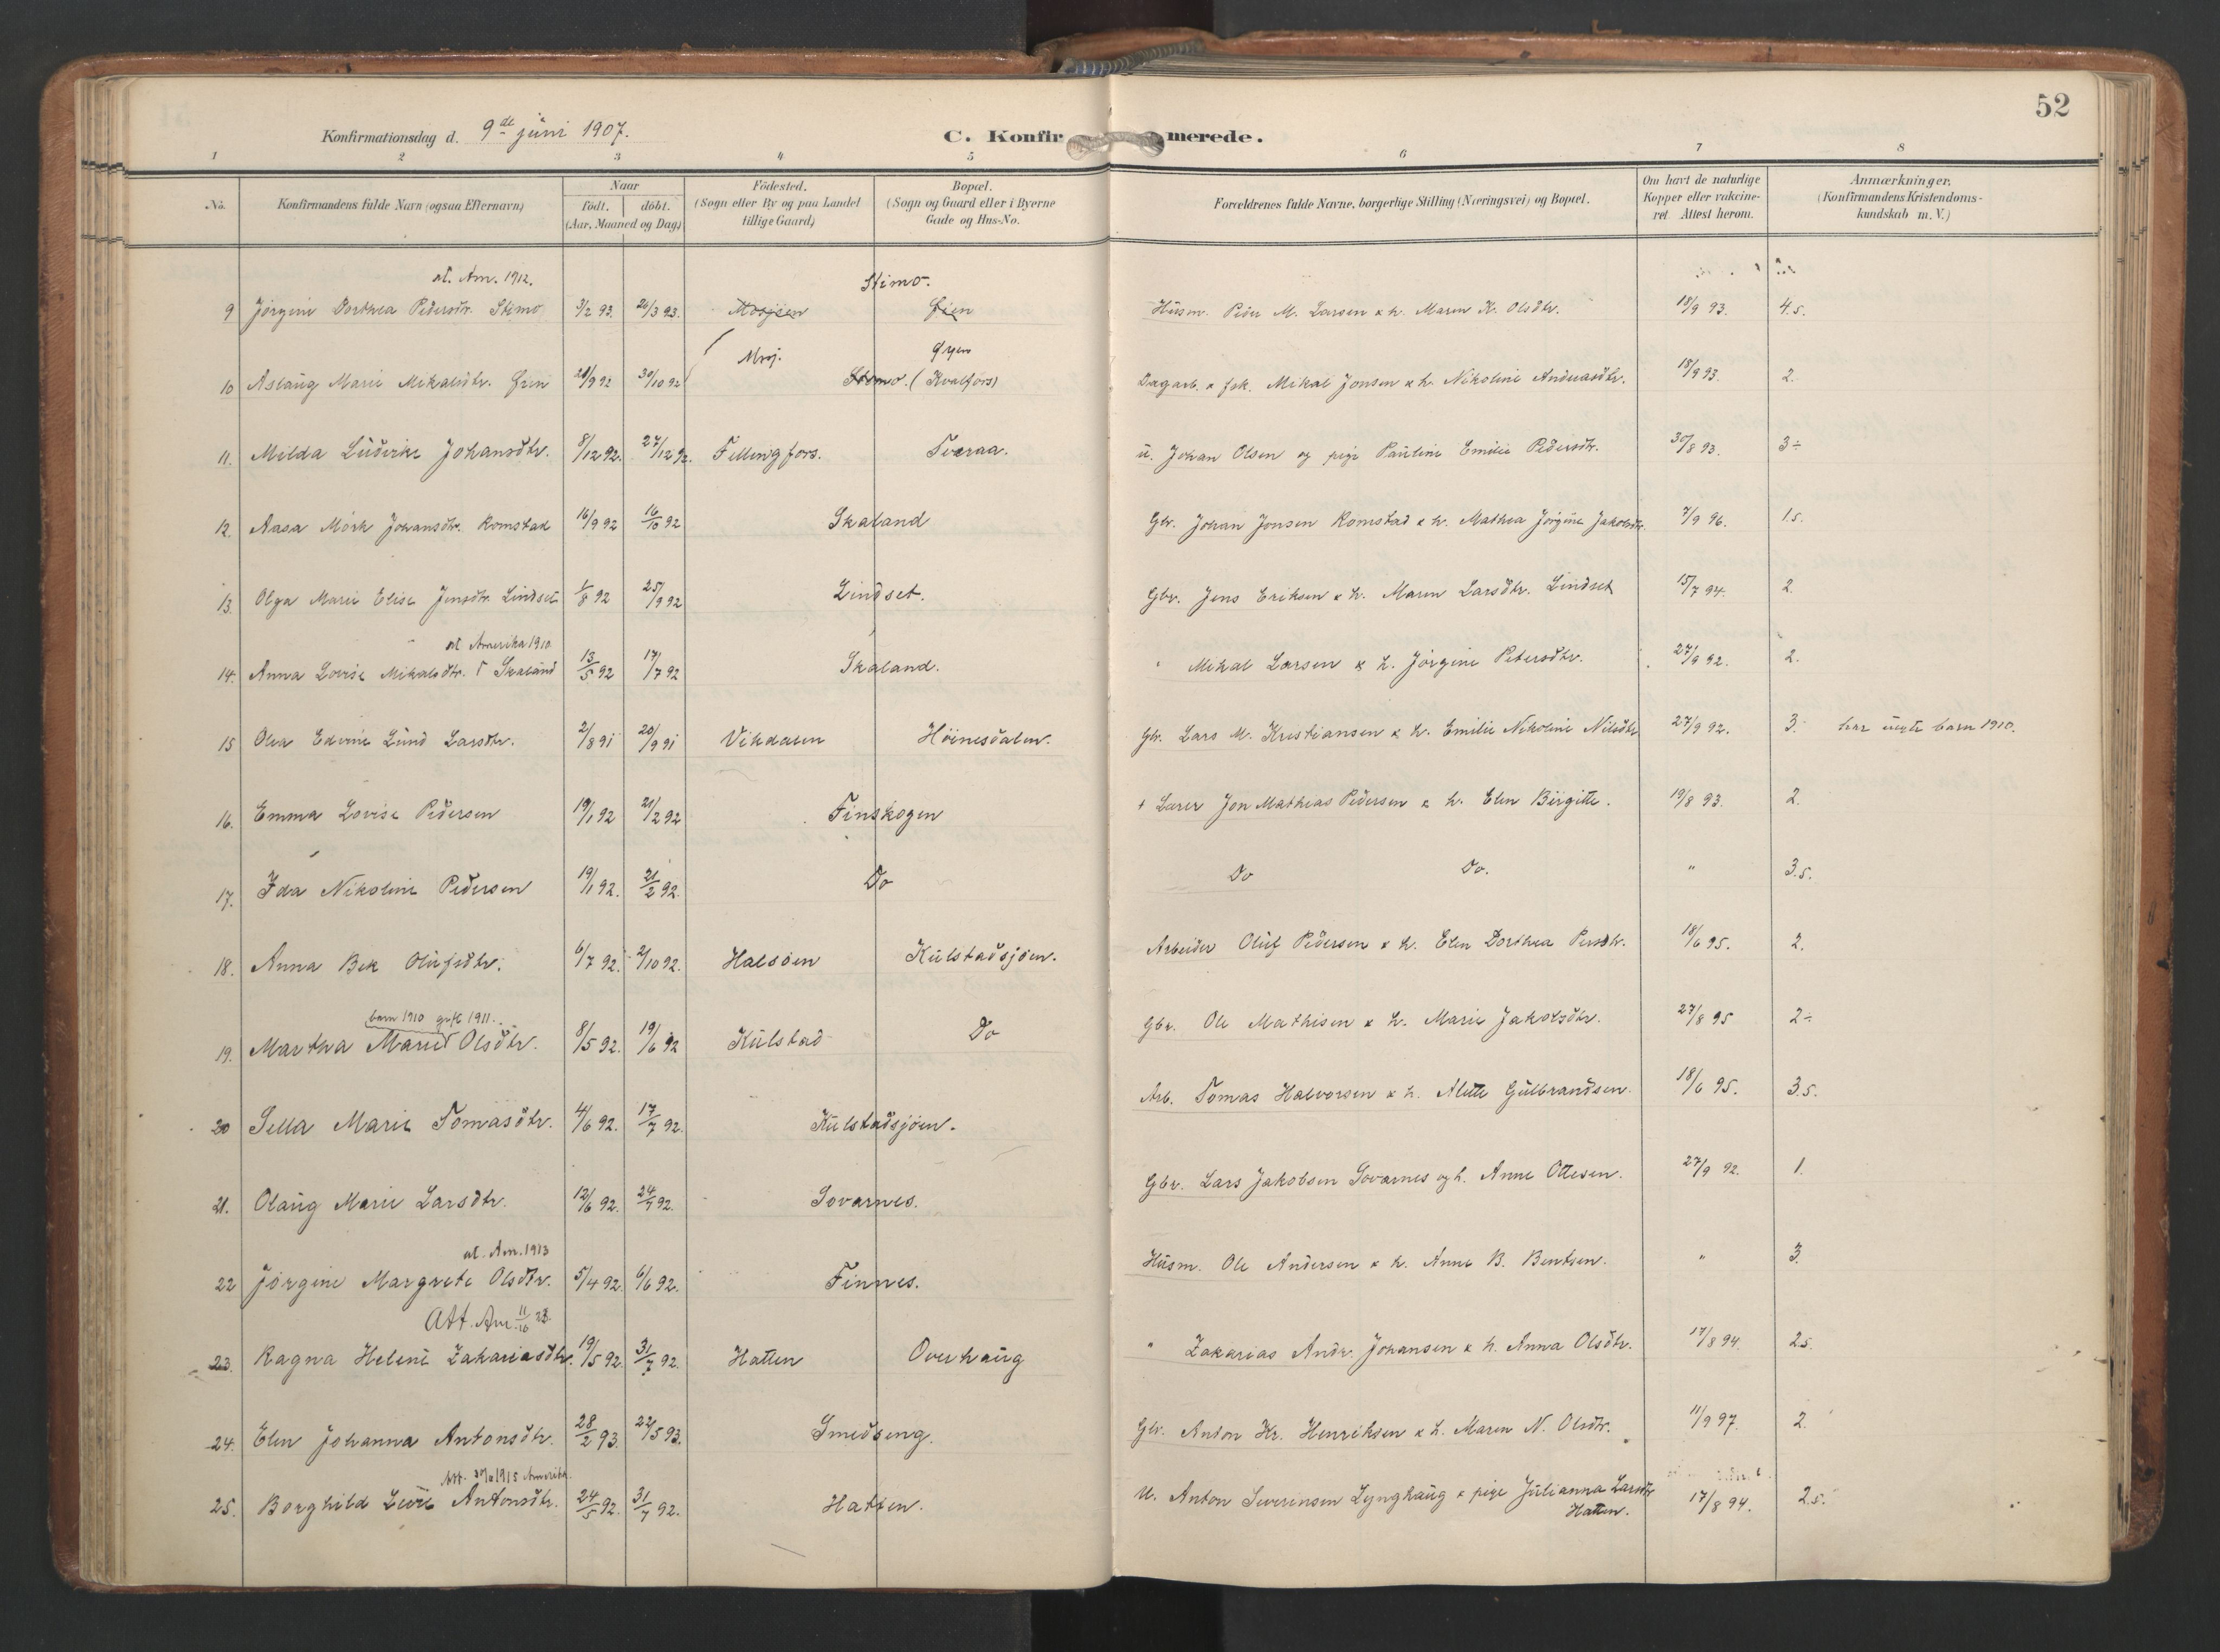 52
Konfirmationsdag d. 9de juni 1907.
C. Konfirmerede.
1 2 3 4 5 6 7 8
No. Konfirmandens fulde Navn (ogsaa Efternavn) Naar Födt. döbt. (Aar, Maaned og Dag) Födested. (Sogn eller By og paa Landet tillige Gaard) Bopæl. (Sogn og Gaard eller i Byerne Gade og Hus-No. Forældrenes fulde Navne, borgerlige Stilling (Næringsvei) og Bopæl. Om havt de naturlige Kopper eller vakcineret Attest herom. Anmærkninger. (Konfirmandens Kristendomskundskab m. V.)
ut. Am. 1912. Stimo.
9 Jörgine Dorthea Pedersdtr. Stimo 3/2 93. 26/3 93. Mosjøen Husm. Peder M. Larsen & h. Maren K. Olsdtr. 18/9 93. 4.5.
Mosj.
10 Aslaug Marie Mikalsdtr. 29/9 92 30/10 92 Stimo. (Kvalfors) Dagarb. & fsk. Mikal Jonsen & h. Nikoline Andreasdtr. 18/9 93. 2.
11. Milda Ludvike Johansdtr. 8/12 92. 27/12 92. Fellingfors. Tveraa. u. Johan Olsen og pige Pauline Emilie Pedersdtr. 30/8 93. 3÷
12. Aasa Mörk Johansdtr. Romstad 16/9 92 16/10 92 Skaland Gbr. Johan Jonsen Romstad & h. Mathea Jörgine Jakobsdtr. 7/9 96. 1.5.
13. Olga Marie Elise Jensdtr. Lindset 1/8 92 25/9 92 Lindset. Gbr. Jens Eriksen & h. Maren Larsdtr. Lindset 15/7 94. 2.
ut Amerika 1910
14. Anna Lovise Mikalsdtr. Skaland 13/5 92 17/7 92 Skaland. " Mikal Larsen & h. Jörgine Petersdtr. 27/9 92. 2.
15 Olea Edvine Lund Larsdtr. 2/8 91 20/9 91 Vikdalen Höinesdalen. Gbr. Lars M. Kristiansen & h. Emilie Nikoline Nilsdtr. 27/9 92. 3. har uegte barn 1910.
16. Emma Lovise Pedersen 19/1 92 21/2 92 Finskogen † Lærer Jon Mathias Pedersen & h. Elen Birgitte. 19/8 93. 2.
17. Ida Nikoline Pedersen 19/1 92. 21/2 92. Do Do Do. " 3.5.
18. Anna Bek Olufsdtr. 6/7 92. 2/10 92. Halsöen Kulstadsjöen. Arbeider Oluf Pedersen & h. Elen Dorthea Persdtr. 18/6 95. 2.
barn 1910 gift 1911.
19. Martha Marie Olsdtr. 8/5 92. 19/6 92 Kulstad Do Gbr. Ole Mathisen & h. Marie Jakobsdtr. 27/8 95 2÷
20 Sella Marie Tomasdtr. 4/6 92. 17/7 92. Kulstadsjöen. Arb. Tomas Halvorsen & h. Alette Gulbrandsen. 18/6 95. 3.5.
21. Olaug Marie Larsdtr. 12/6 92. 24/7 92. Sovarnes. Gbr. Lars Jakobsen Sovarnes og h. Anne Ottesen. 27/9 92. 1.
ut. Am. 1913
22 Jörgine Margrete Olsdtr. 5/4 92. 6/6 92. Finnes. Husm. Ole Andersen & h. Anne B. Bentsen. " 3.
Att. Am. 11/10 23.
23. Ragna Helene Zakariasdtr. 19/5 92. 31/7 92. Hatten Overhaug " Zakarias Andr. Johansen & h. Anna Olsdtr. 17/8 94. 2.5.
24. Elen Johanna Antonsdtr. 28/2 93. 22/5 93. Smedseng. Gbr. Anton Kr. Henriksen & h. Maren N. Olsdtr. 11/9 97. 2.
Att. 1915 Amerika.
25. Borghild Antonsdtr. 24/5 92. 31/7 92. Hatten. U. Anton Severinsen Lynghaug & pige Julianna Larsdtr 17/8 94. 2.5.
Hatten.